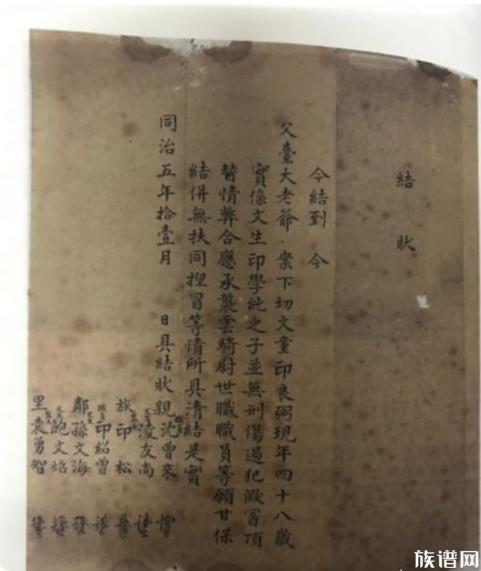 結狀
今結到 今
父臺大老爺 案下切文童印良弼現年四十八歲
實係文生印學純之子並無刑傷過犯假冒頂
替情弊合應承襲雲騎尉世職職員等願甘保
結併無扶同捏冒等情所具清結是實
同治五年拾壹月 日具結狀親沈曾來
凌友尚
族印松
印紹曾
鄰孫文海
鮑文焰
里袁勇智
族谱网